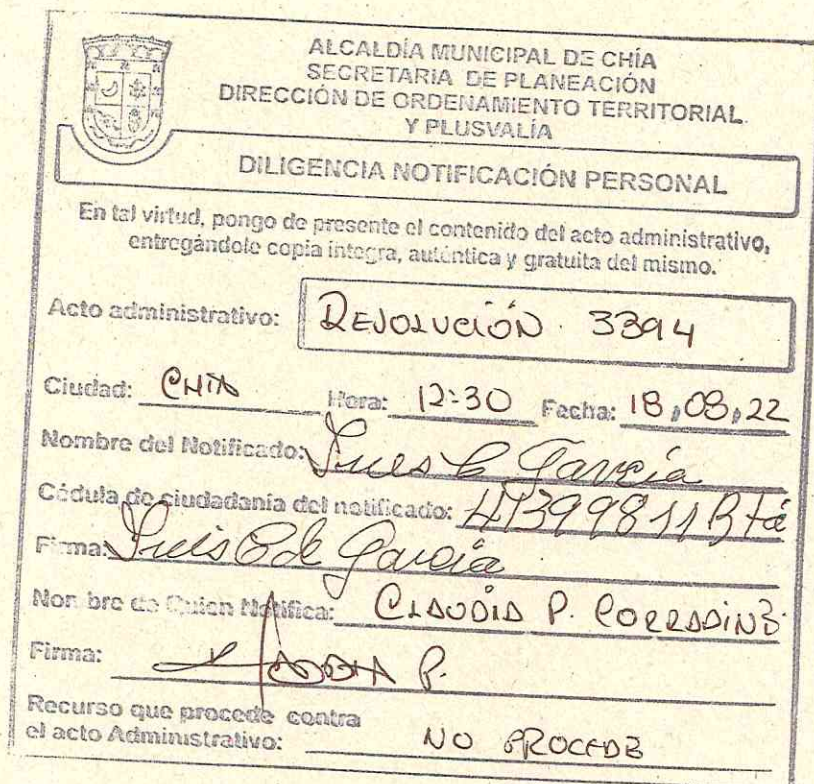 ALCALDÍA MUNICIPAL DE CHÍA
SECRETARIA DE PLANEACIÓN
DIRECCIÓN DE ORDENAMIENTO TERRITORIAL
Y PLUSVALÍA
DILIGENCIA NOTIFICACIÓN PERSONAL
En tal virtud, pongo de presente el contenido del acto administrativo,
entregándole copia integra, auténtica y gratuita del mismo.
Acto administrativo: RESOLUCIÓN 3394
Ciudad: CHIA Hora: 12:30 Fecha: 18,08,22
Nombre del Notificado: García
Cédula de ciudadanía del notificado: 41399811 Bta
Firma: de García
Nombre de Quien Notifica: CLAUDIA P. CORRADINE
Firma: P.
Recurso que procede contra
el acto Administrativo: NO PROCEDE